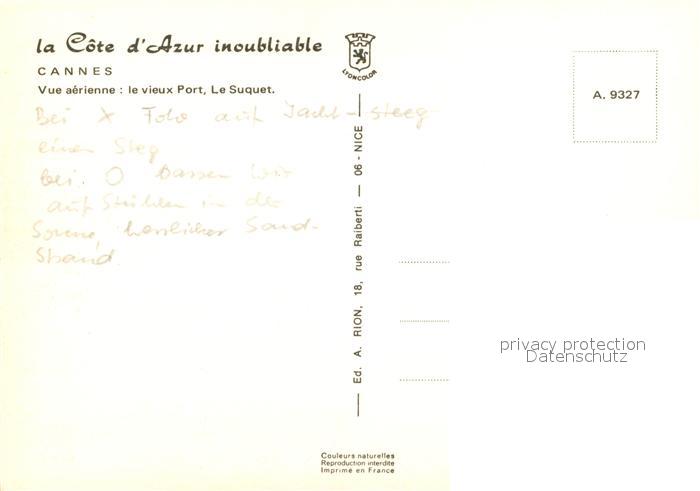 la Côte d'Azur inoubliable
CANNES
Vue aérienne : le vieux Port, Le Suquet.
LYONCOLOR
A. 9327
Bei X Foto auf Jacht-steeg
einen Steg
bei O wir
auf Stühlen in der
Sonne, herrlicher Sand-
Strand
Ed. A. RION, 18, rue Raiberti — 06 - NICE
privacy protection
Datenschutz
Couleurs naturelles
Reproduction interdite
Imprimé en France